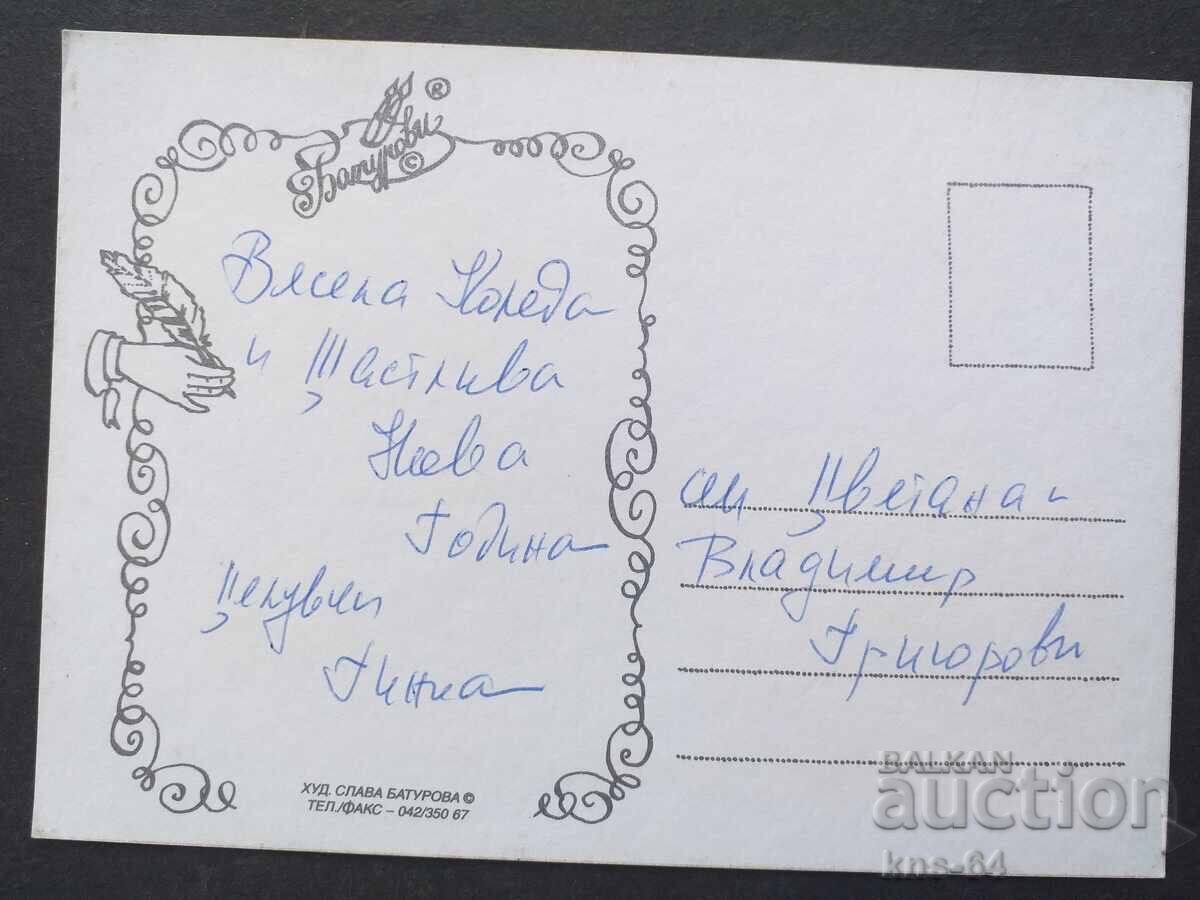 Батурови ®
©
Весела Коледа
и Щастлива
Нова
Година
Целувки
Гинка
ХУД. СЛАВА БАТУРОВА ©
ТЕЛ./ФАКС – 042/350 67
сем. Цветана и
Владимир
Григорови
BALKAN
auction
kns-64